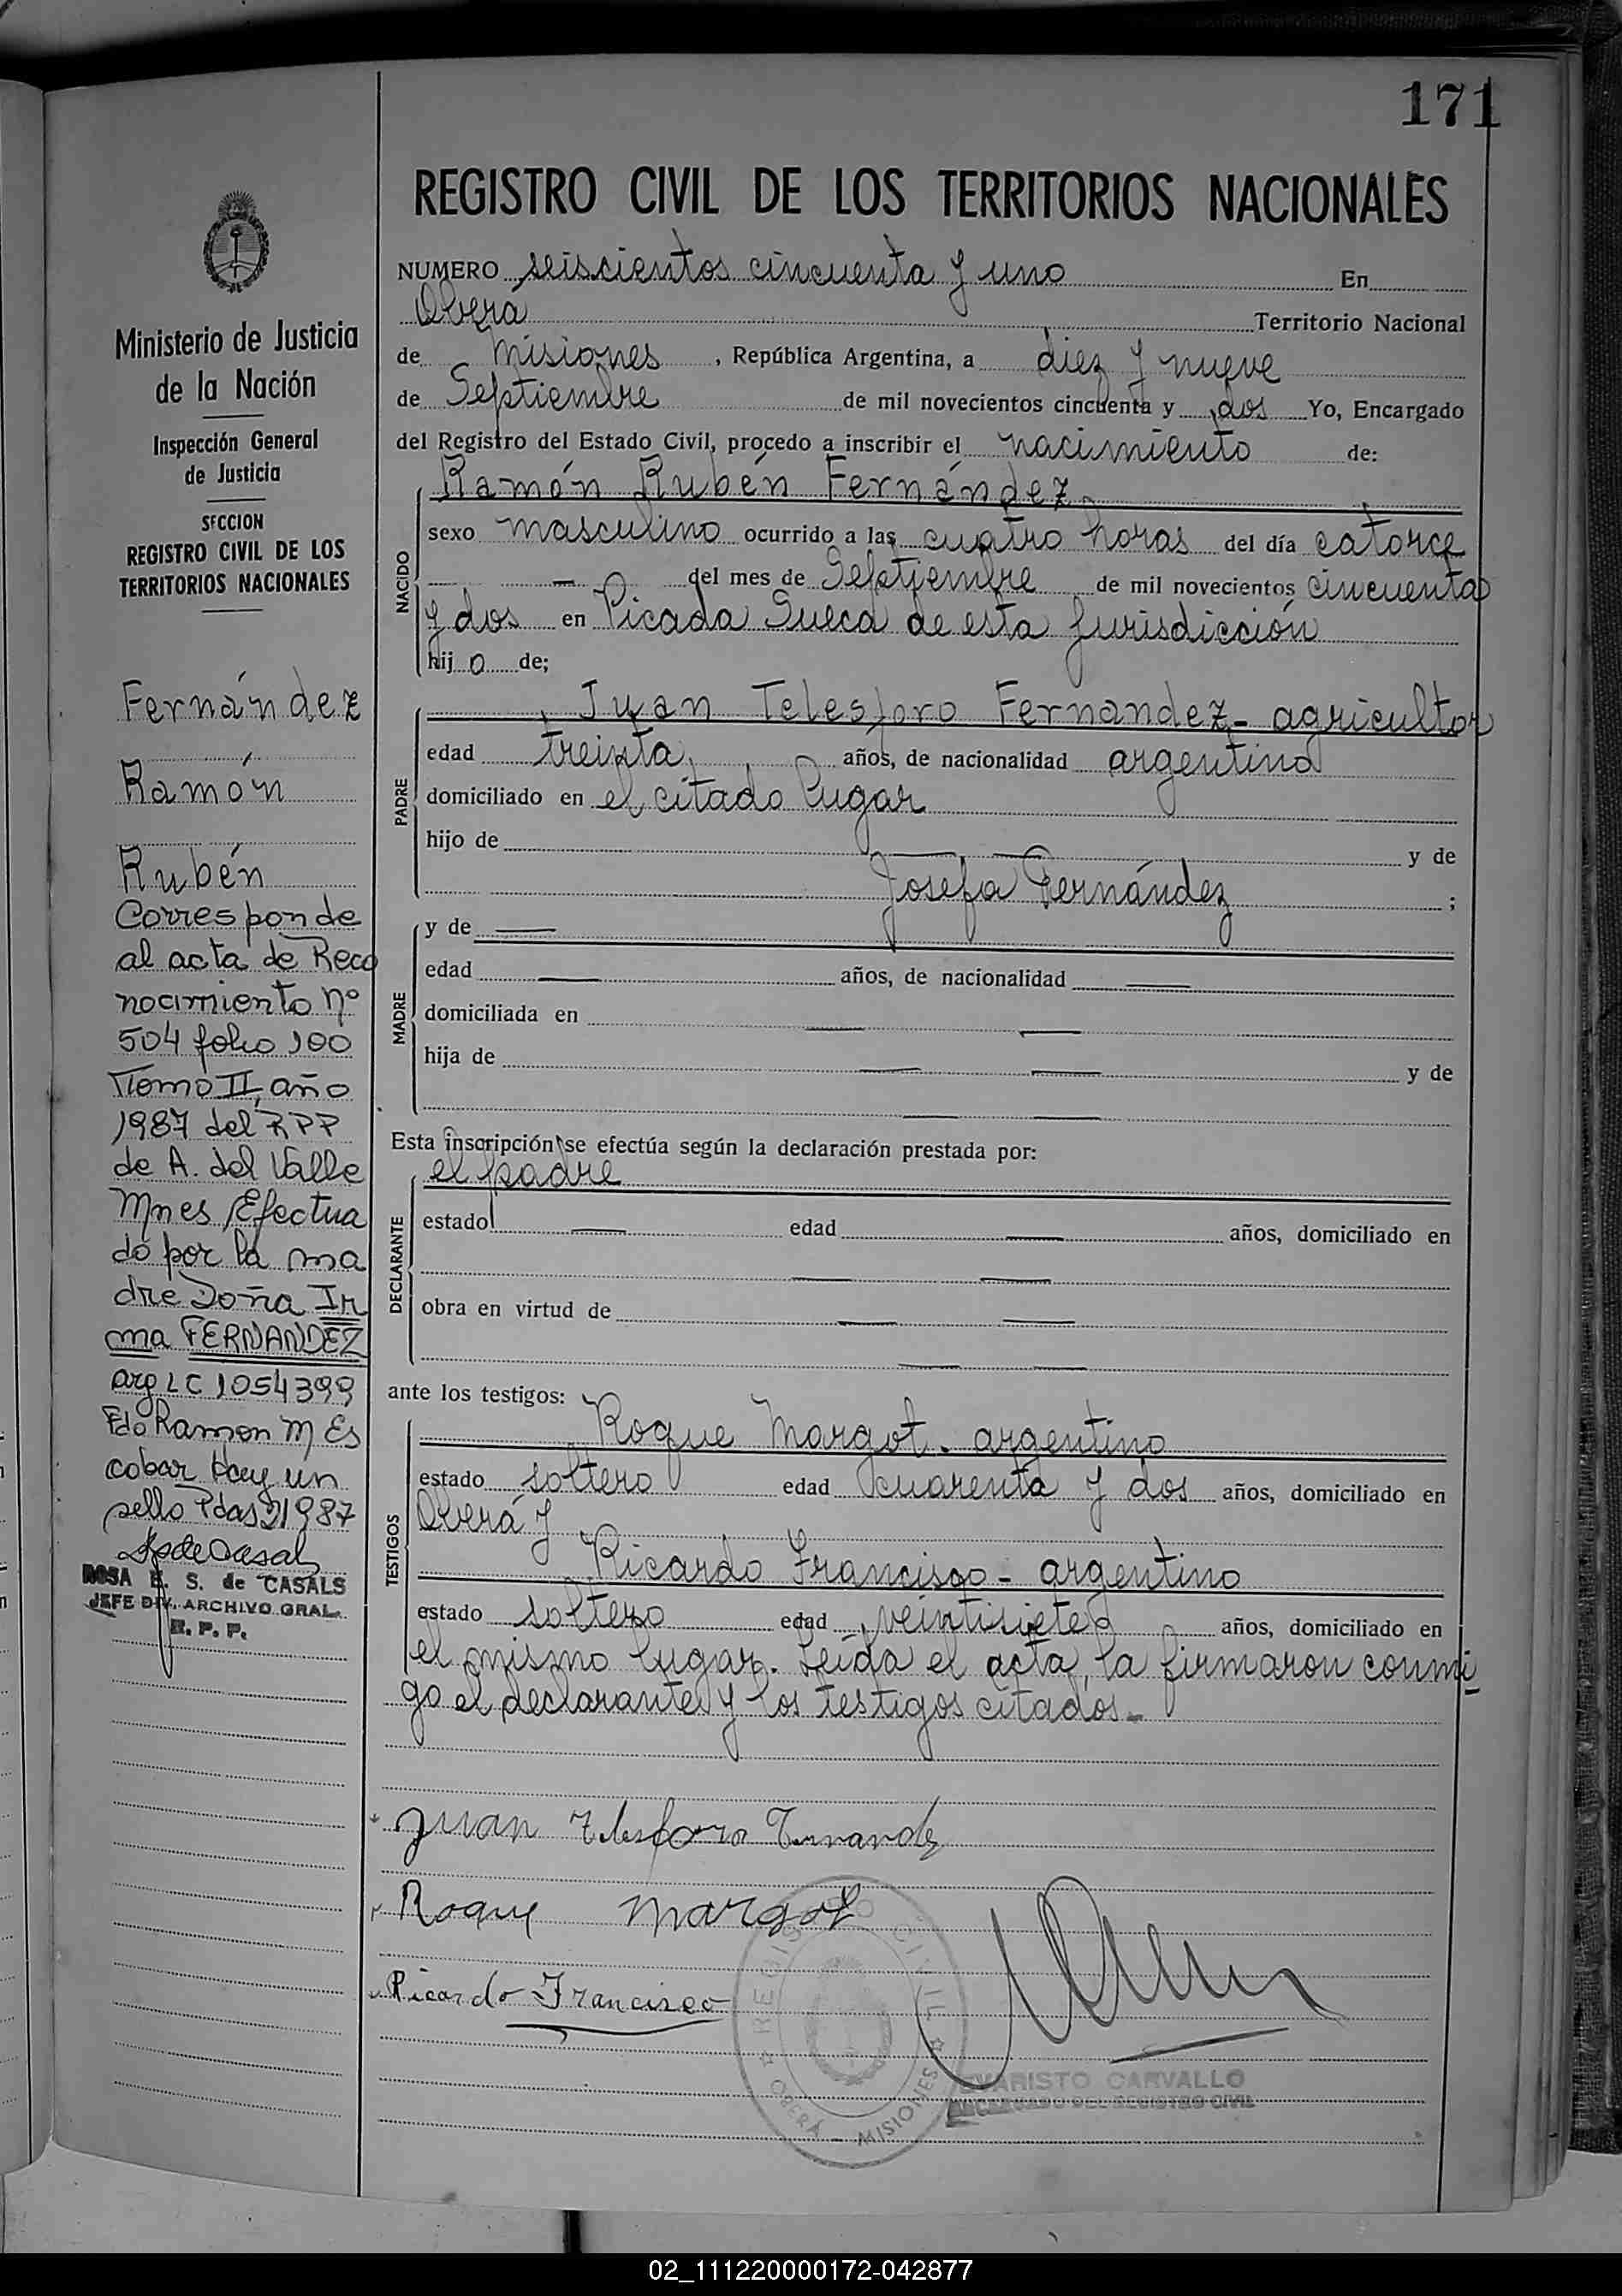 171
REGISTRO CIVIL DE LOS TERRITORIOS NACIONALES
Ministerio de Justicia
de la Nación
Inspección General
de Justicia
SECCION
REGISTRO CIVIL DE LOS
TERRITORIOS NACIONALES
Fernández
Ramón
Rubén
Corresponde
al acta de Reco
nocimiento nº
504 folio 100
Tomo II, año
1987 del RPP
de A. del Valle
Mnes, Efectua
do por la ma
dre Doña Ir
ma FERNANDEZ
arg LC 1054399
Fdo Ramon M Es
cobar Hay un
sello Pdas 1987
ROSA E. S. de CASALS
JEFE DIV. ARCHIVO GRAL.
R. P. P.
NUMERO seiscientos cincuenta y uno En
Oberá Territorio Nacional
de Misiones, República Argentina, a diez y nueve
de Septiembre de mil novecientos cincuenta y dos Yo, Encargado
del Registro del Estado Civil, procedo a inscribir el nacimiento de:
NACIDO
Ramón Rubén Fernández
sexo masculino ocurrido a las cuatro horas del día catorce
— del mes de Septiembre de mil novecientos cincuenta
y dos en Picada Sueca de esta jurisdicción
hijo de;
PADRE
Juan Telesforo Fernandez - agricultor
edad treinta años, de nacionalidad argentina
domiciliado en el citado lugar
hijo de — — y de
Josefa Fernández ;
MADRE
y de —
edad — años, de nacionalidad —
domiciliada en — —
hija de — — y de
— —
Esta inscripción se efectúa según la declaración prestada por:
DECLARANTE
el padre
estado — edad — años, domiciliado en
— —
obra en virtud de — —
— —
ante los testigos:
TESTIGOS
Roque Margot - argentino
estado soltero edad cuarenta y dos años, domiciliado en
Oberá y
Ricardo Francisco - argentino
estado soltero edad veintisiete años, domiciliado en
el mismo lugar. Leída el acta, la firmaron conmi-
go el declarante y los testigos citados.-
Juan Telesforo Fernandez
Roque Margot
Ricardo Francisco
REGISTRO CIVIL
OBERÁ - MISIONES
EVARISTO CARVALLO
ENCARGADO DEL REGISTRO CIVIL
02_111220000172-042877